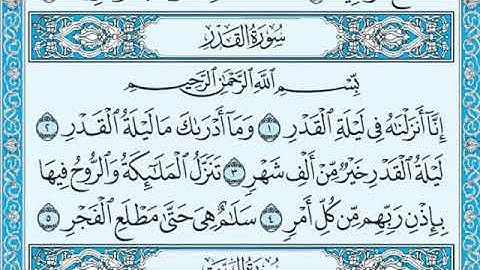 سُورَةُ القَدْرِ
بِسْمِ اللَّهِ الرَّحْمَٰنِ الرَّحِيمِ
إِنَّا أَنزَلْنَٰهُ فِي لَيْلَةِ ٱلْقَدْرِ ١ وَمَآ أَدْرَىٰكَ مَا لَيْلَةُ ٱلْقَدْرِ ٢
لَيْلَةُ ٱلْقَدْرِ خَيْرٌ مِّنْ أَلْفِ شَهْرٍ ٣ تَنَزَّلُ ٱلْمَلَٰٓئِكَةُ وَٱلرُّوحُ فِيهَا
بِإِذْنِ رَبِّهِم مِّن كُلِّ أَمْرٍ ٤ سَلَٰمٌ هِيَ حَتَّىٰ مَطْلَعِ ٱلْفَجْرِ ٥